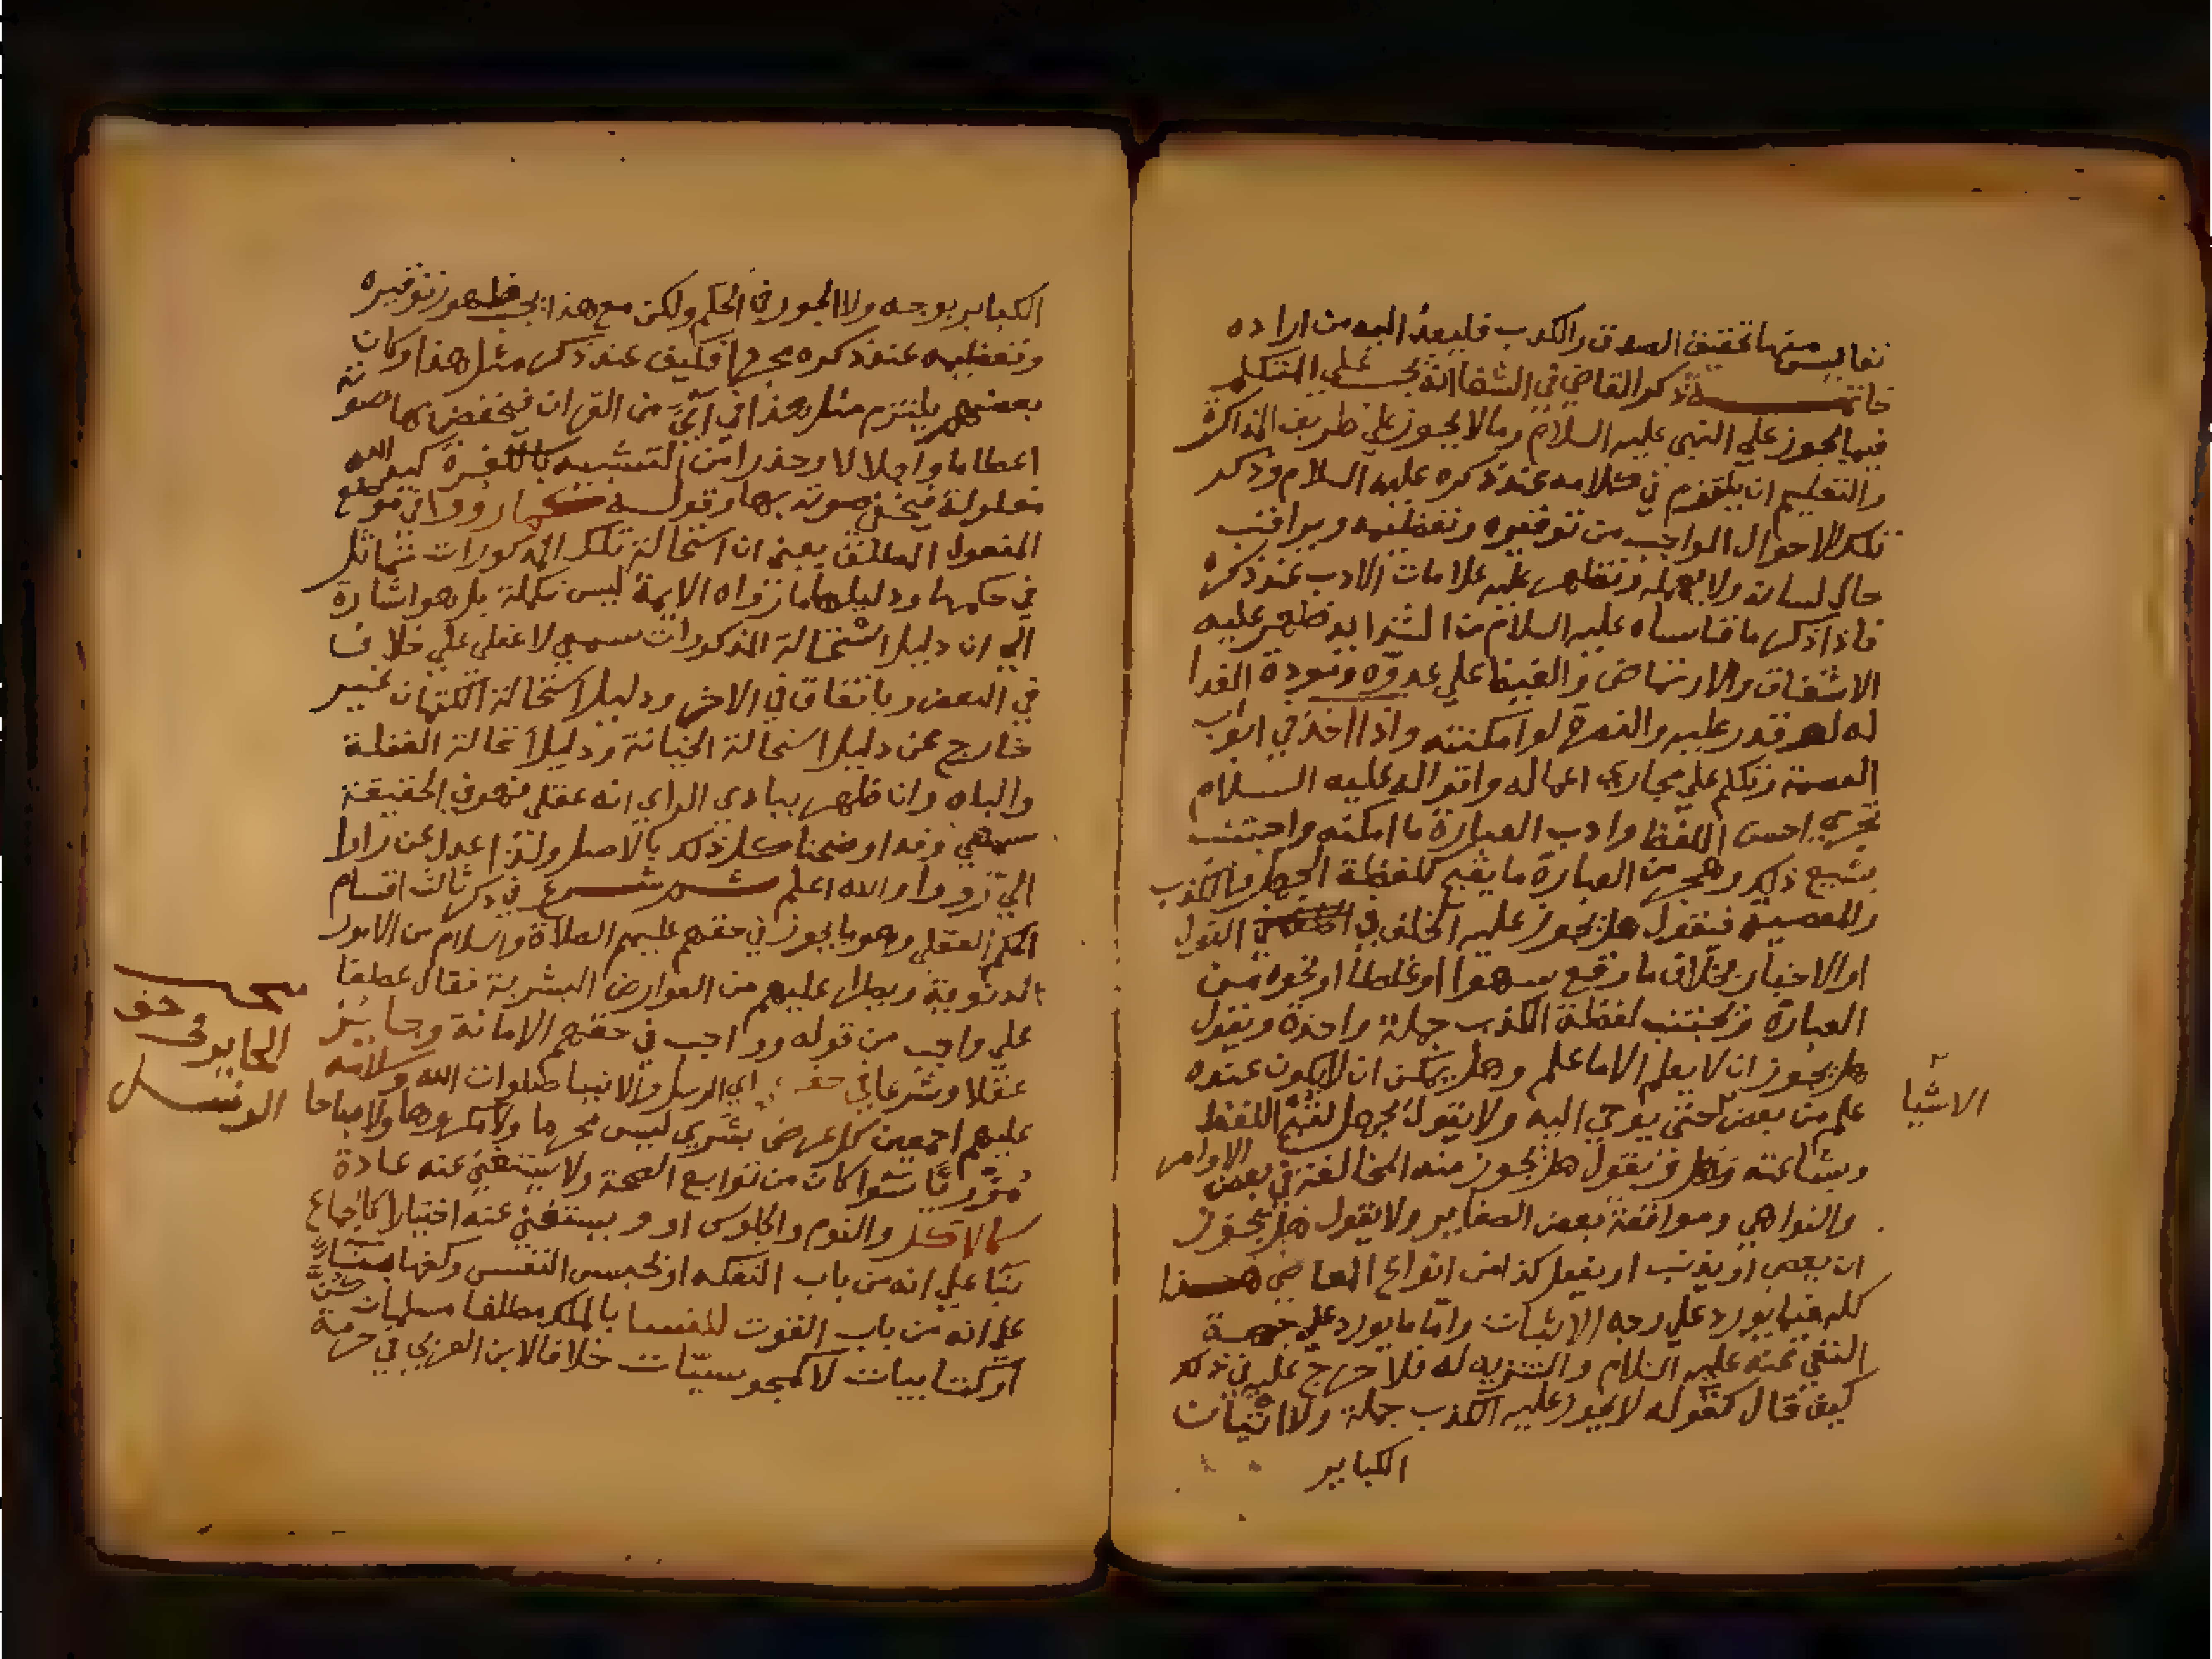 نفايس منها تحقيق الصدق والكذب فليعد اليه من اراده
خاتمة ذكر القاضي في الشفا انه يجب علي المتكلم
فيما يجوز علي النبي عليه السلام وما لا يجوز علي طريق المذاكرة
والتعليم ان يلتزم في كلامه عند ذكره عليه السلام وذكر
تلك الاحوال الواجب من توقيره وتعظيمه ويراقب
حال لسانه ولا يهمله وتظهر عليه علامات الادب عند ذكره
فاذا ذكر ما قاساه عليه السلام من الشدايد ظهر عليه
الاشفاق والارتماض والغيظ علي عدوه ومودة الفدا
له لو قدر عليه والنصرة لو امكنته واذا اخذ في ابواب
العصمة وتكلم علي مجاري اعماله واقواله عليه السلام
تحري احسن اللفظ وادب العبارة ما امكنه واجتنب
بشيع ذلك وهجر من العبارة ما يقبح كلفظة الجهل والكذب
والمعصية فيقول هل يجوز عليه الخلف في القول
او الاخبار بخلاف ما وقع سهوا او غلطا او نحوه من
العبارة ويجتنب لفظة الكذب جملة واحدة ويقول
هل يجوز ان لا يعلم الا ما علم وهل يمكن ان لا يكون عنده
علم من بعض حتي يوحي اليه ولا يقول بجهل لقبح اللفظ
الاشيا
وبشاعته ويقول هل يجوز منه المخالفة في بعض الاوامر
والنواهي ومواقعة بعض الصغاير ولا يقول هل يجوز
ان يعصي او يذنب او يفعل كذا من انواع المعاصي هذا
كله فيما يورد علي وجه الاثبات واما ما يورد علي جهة
النفي عنه عليه السلام والتنزيه له فلا حرج عليه في ذلك
كيف قال كقوله لا يجوز عليه الكذب جملة ولا اتيان
الكباير
الكباير بوجه ولا الجور في الحكم ولكن مع هذا يجب ظهور توقيره
وتعظيمه عند ذكره مجردا فكيف عند ذكر مثل هذا وكان
بعضهم يلتزم مثل هذا في آي من القران فيخفض بها صوته
اعظاما واجلالا وحذرا من التشبيه بالكفرة كيد الله
مغلولة فيخفي صوته بها وقوله كما رووا في موضع
المفعول المطلق يعني ان استحالة تلك المذكورات تماثل
في حكمها ودليلها ما رواه الايمة ليس تكملة بل هو اشارة
الي ان دليل استحالة المذكورات سمعي لا عقلي علي خلاف
في البعض وباتفاق في الاخر ودليل استحالة الكتمان غير
خارج عن دليل استحالة الخيانة ودليل استحالة الغفلة
والبله وان ظهر ببادي الراي انه عقلي فهو في الحقيقة
سمعي وقد اوضحنا كل ذلك بالاصل ولذا عدل عن راوا
الي رووا والله اعلم ثم شرع في ذكر ثالث اقسام
الحكم العقلي وهو ما يجوز في حقهم عليهم الصلاة والسلام من الامور
الدنيوية ويطرا عليهم من العوارض البشرية فقال عطفا
علي واجب من قوله وواجب في حقهم الامانة وجايز
عقلا وشرعا في حقهم اي الرسل والانبيا صلوات الله وسلامه
عليهم اجمعين كل عرض بشري ليس محرما ولا مكروها ولا مباحا
مزريا سوا كان من توابع الصحة ولا يستغني عنه عادة
كالاكل والنوم والجلوس او ويستغني عنه اختيارا كالجماع
بنا علي انه من باب التفكه او لحبس النفس وكفها
علي انه من باب القوت للنسا بالملك مطلقا مسلمات كن
او كتابيات لا مجوسيات خلافا لابن العربي في حرمة
مبحث
الجايز في حق
الرسل